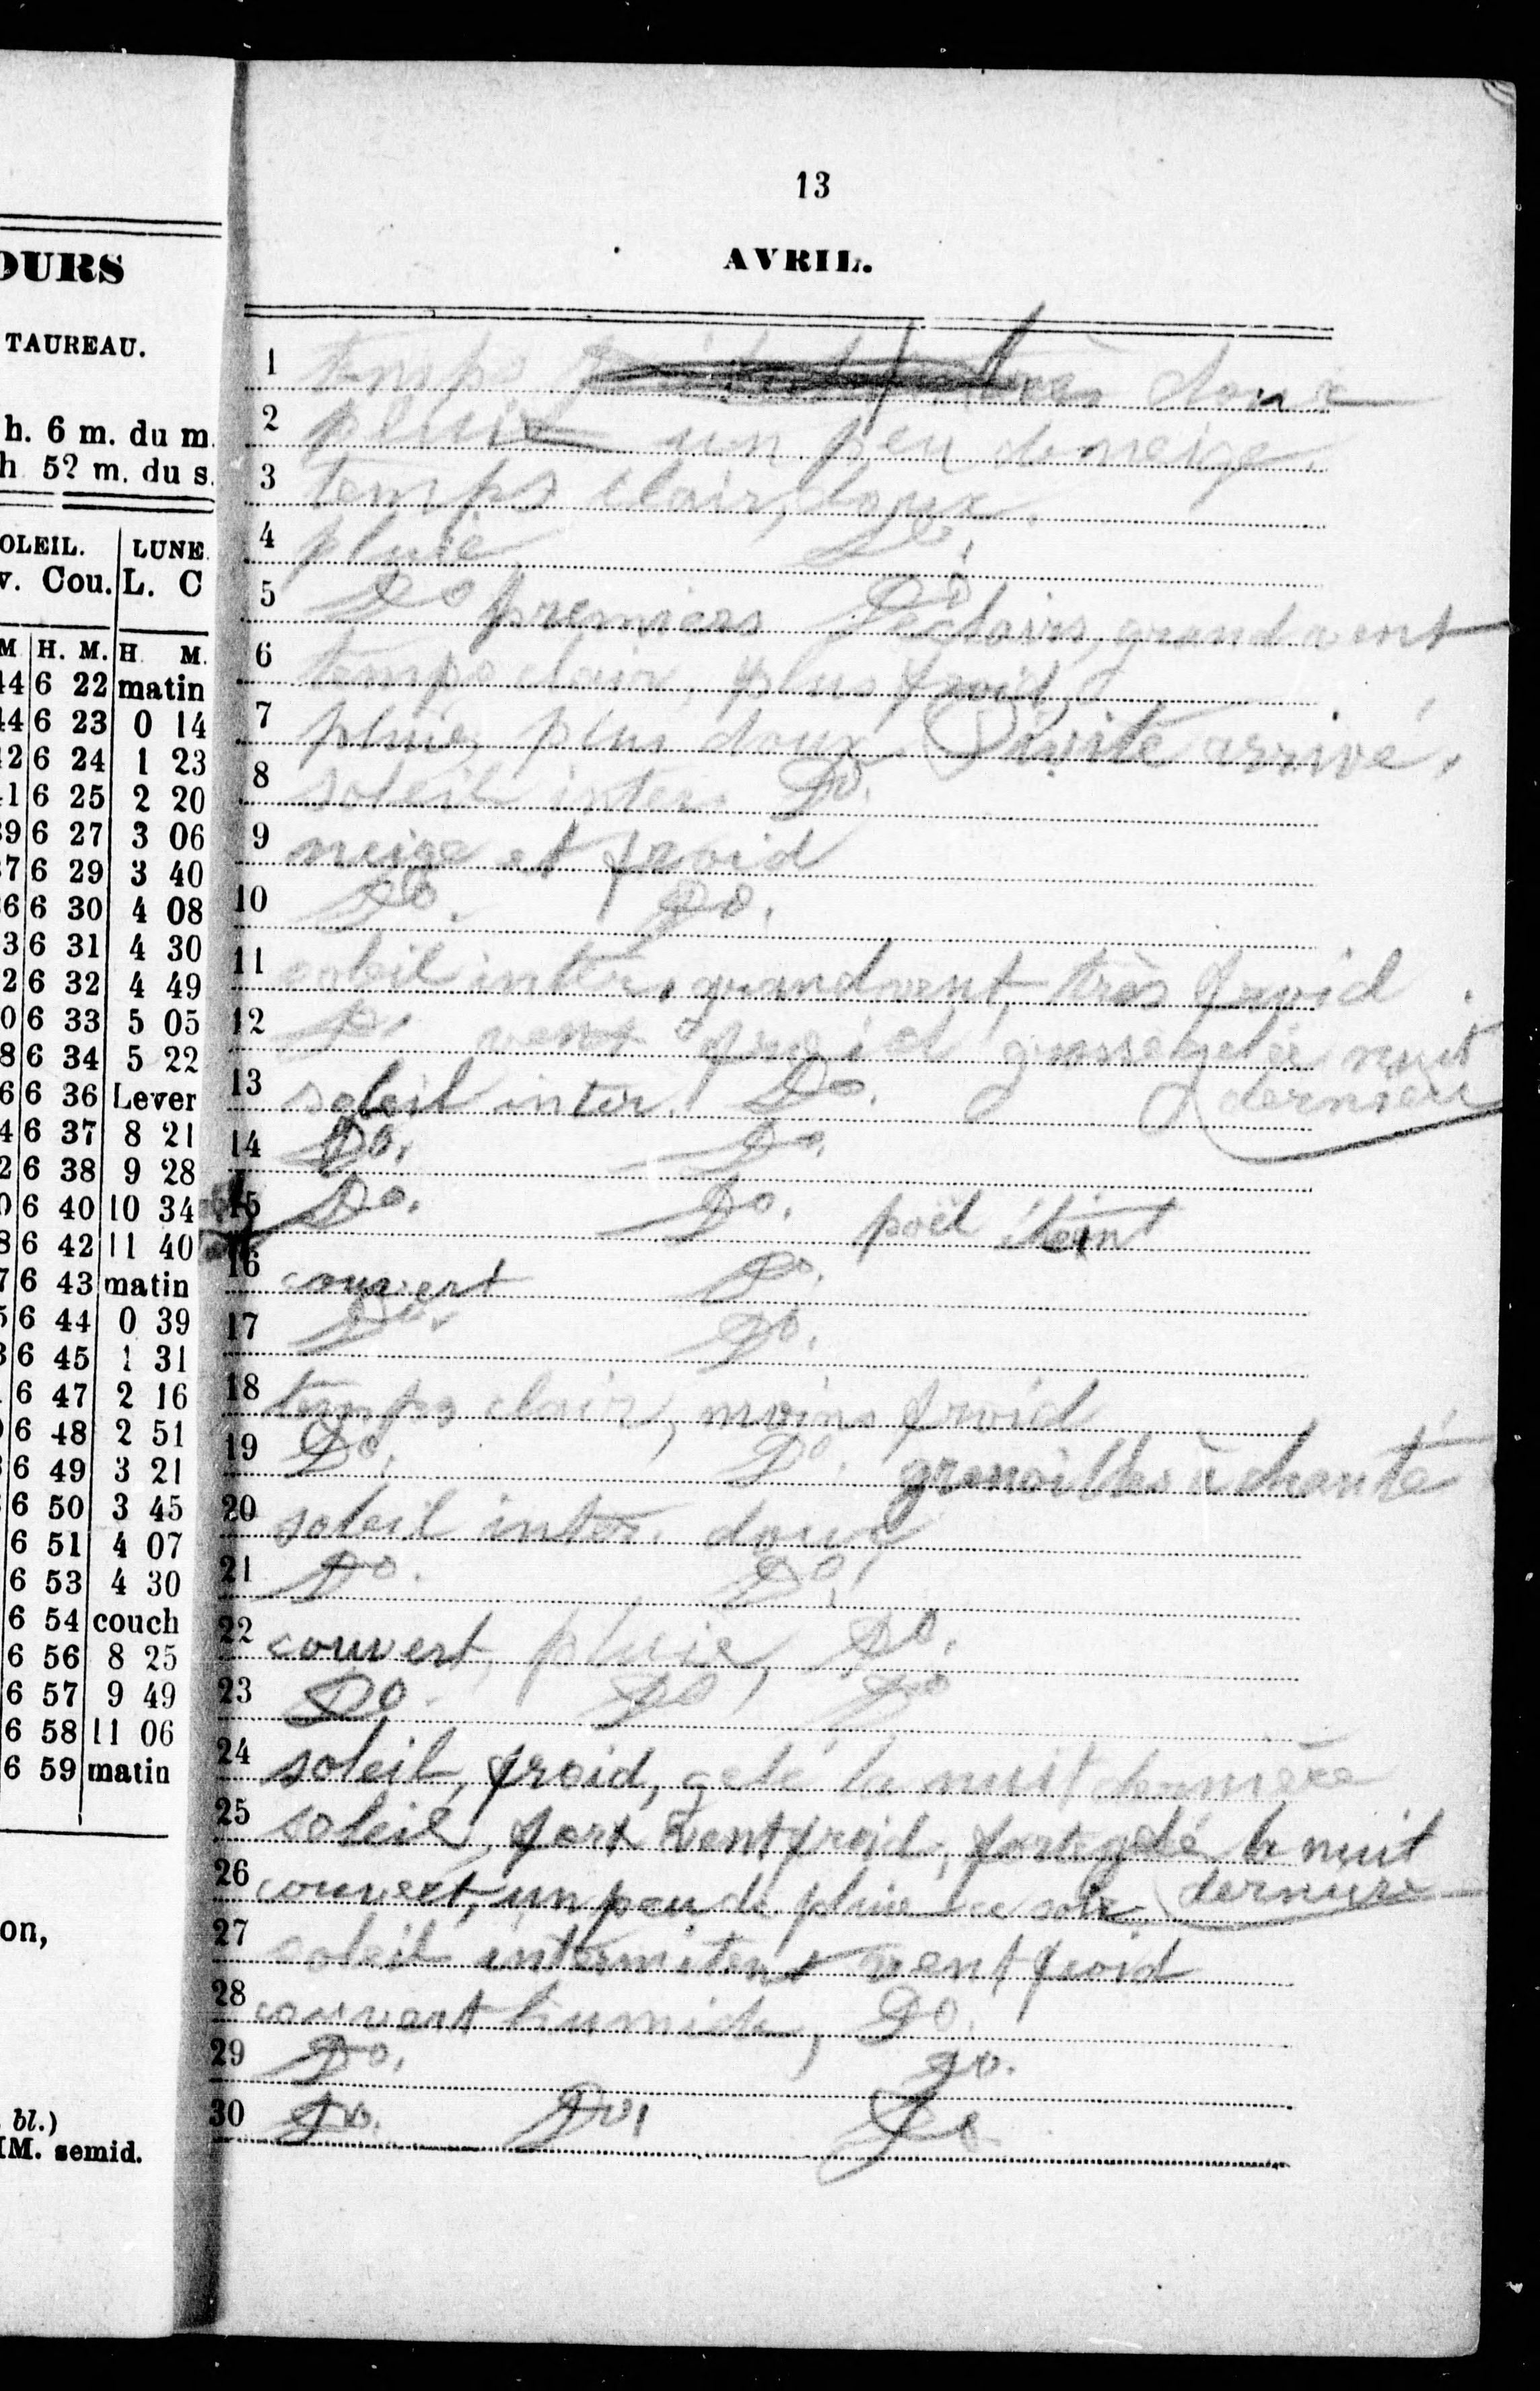 OURS
TAUREAU.
h. 6 m. du m.
h 52 m. du s.
OLEIL. LUNE.
v. Cou. L. C
M H. M. H M.
44 6 22 matin
44 6 23 0 14
42 6 24 1 23
41 6 25 2 20
39 6 27 3 06
37 6 29 3 40
36 6 30 4 08
3 6 31 4 30
2 6 32 4 49
0 6 33 5 05
8 6 34 5 22
6 6 36 Lever
4 6 37 8 21
2 6 38 9 28
0 6 40 10 34
8 6 42 11 40
7 6 43 matin
5 6 44 0 39
3 6 45 1 31
6 47 2 16
6 48 2 51
6 49 3 21
6 50 3 45
6 51 4 07
6 53 4 30
6 54 couch
6 56 8 25
6 57 9 49
6 58 11 06
6 59 matin
on,
bl.)
IM. semid.
13
AVRIL.
1 temps très doux
2 pluie un peu de neige.
3 temps clair, doux.
4 pluie Do.
5 Do Do
premiers éclairs, grand vent
6 temps clair, plus froid
7 pluie, plus doux. Pivite arrivé.
8 soleil inter. Do.
9 neige et froid
10 Do. Do.
11 soleil inter, grand vent, très froid
12 Do vent froid grosse gelée nuit
dernière
13 soleil inter. Do.
14 Do. Do.
15 Do. Do. poêl éteint
16 couvert Do.
17 Do. Do.
18 temps clair, moins froid
19 Do. Do. grenoilles à chanté
20 soleil inter. doux
21 Do. Do.
22 couvert, pluie, Do.
23 Do. Do, Do
24 soleil, froid, gelé la nuit dernière
25 soleil, fort vent froid, fort gelé la nuit
dernière
26 couvert, un peu de pluie ce soir
27 soleil intermitent vent froid
28 couvert humide, Do.
29 Do. Do.
30 Do. Do. Do